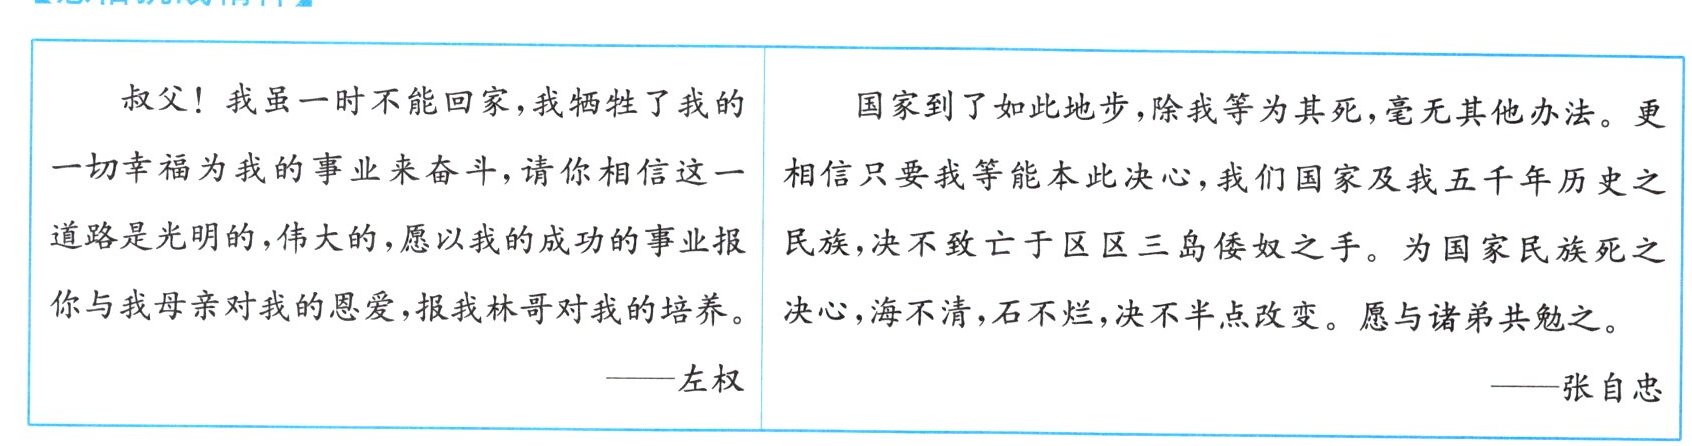 叔父！我虽一时不能回家，我牺牲了我的
一切幸福为我的事业来奋斗，请你相信这一
道路是光明的，伟大的，愿以我的成功的事业报
你与我母亲对我的恩爱，报我林哥对我的培养。
——左权
国家到了如此地步，除我等为其死，毫无其他办法。更
相信只要我等能本此决心，我们国家及我五千年历史之
民族，决不致亡于区区三岛倭奴之手。为国家民族死之
决心，海不清，石不烂，决不半点改变。愿与诸弟共勉之。
——张自忠